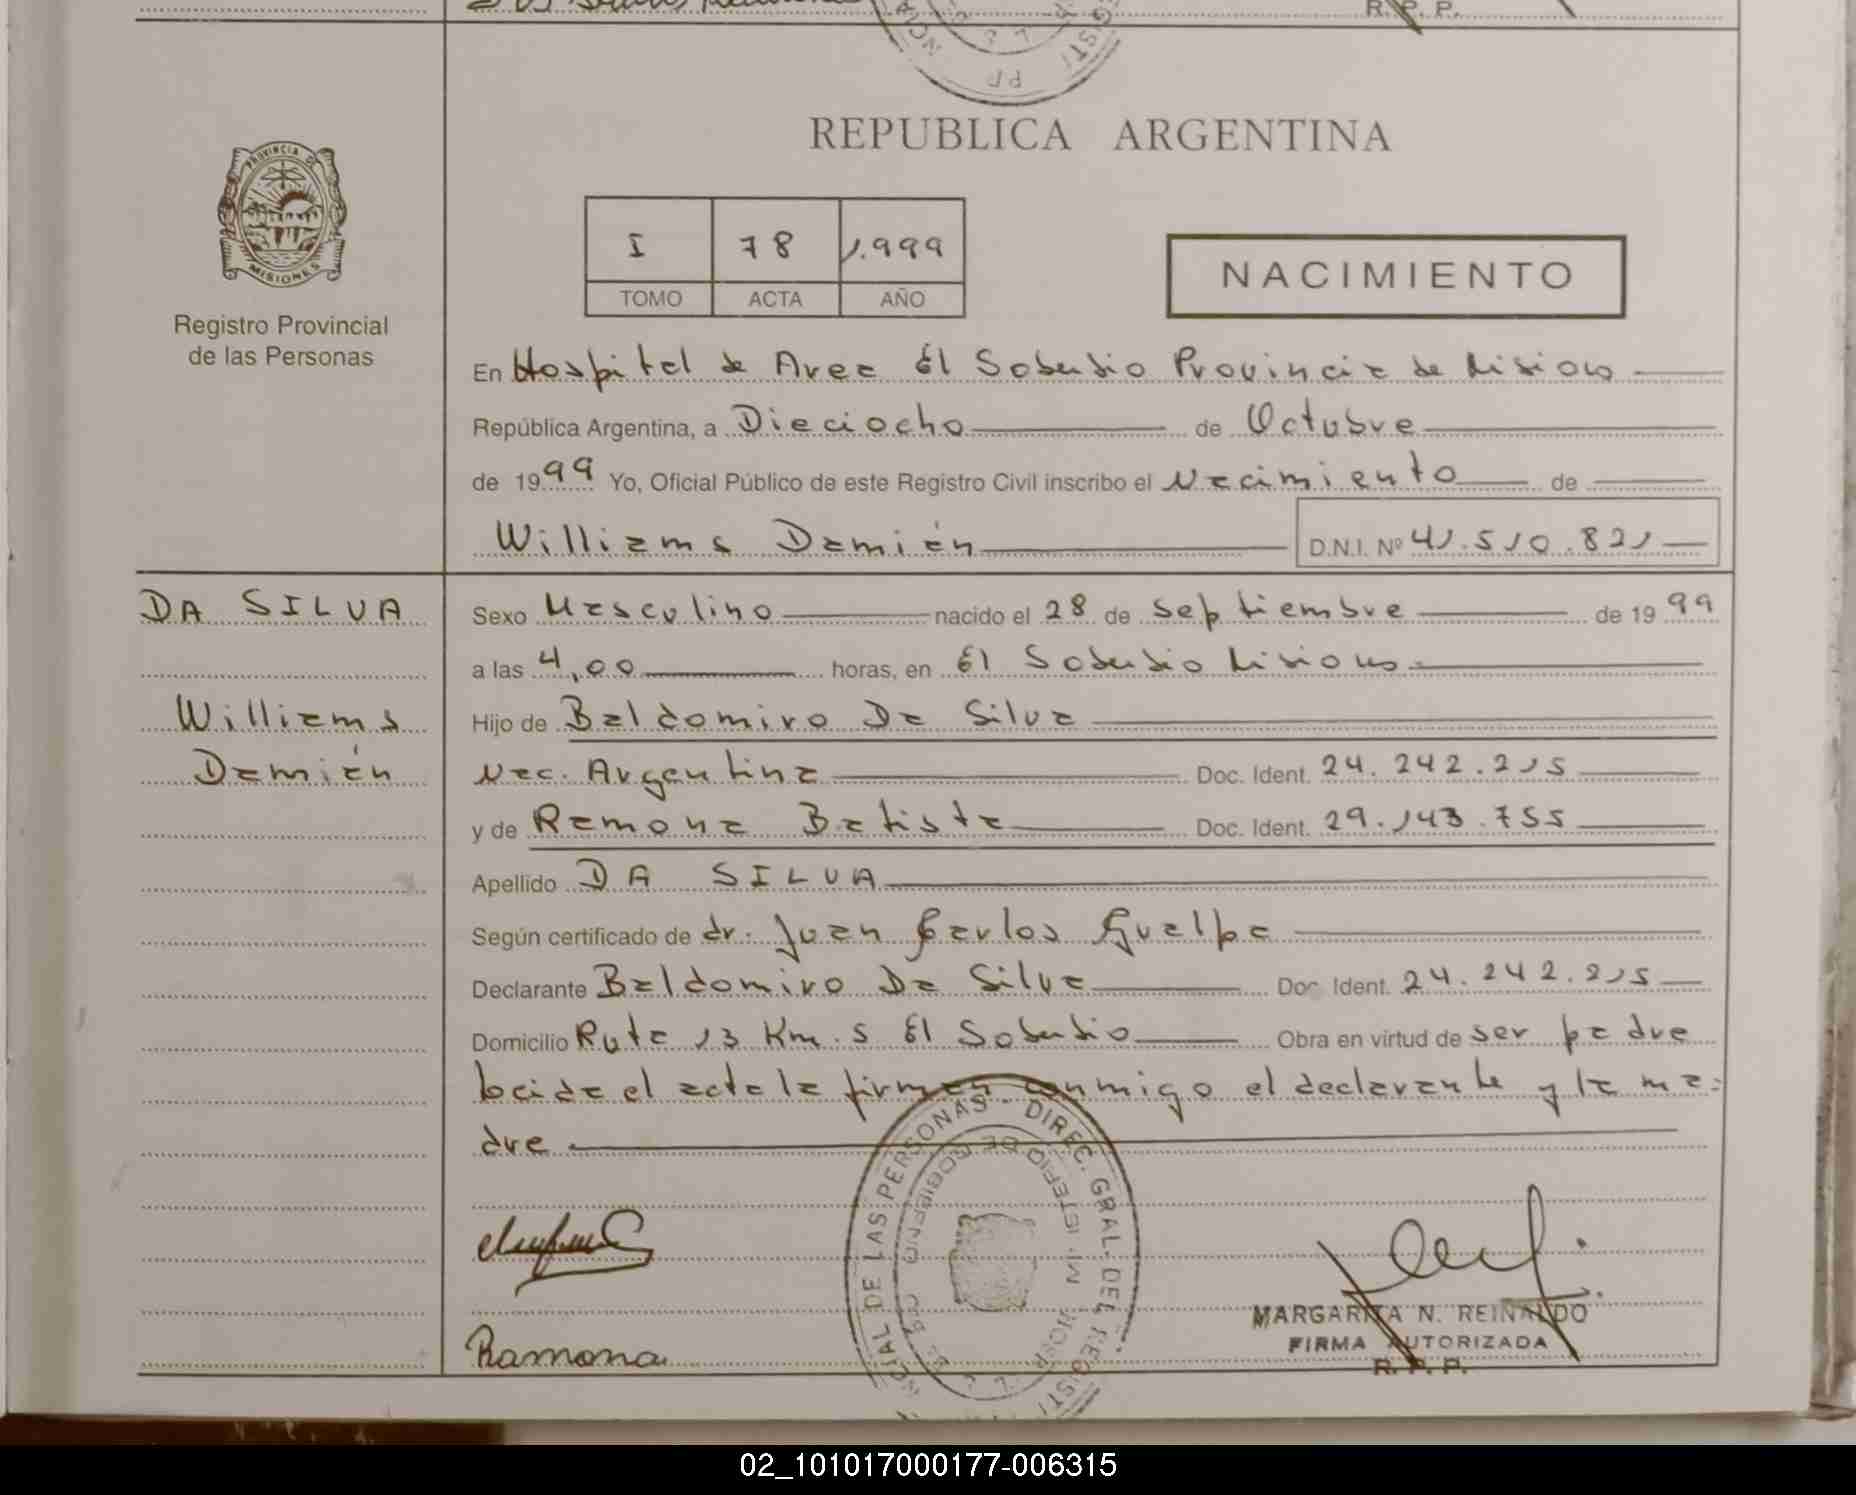 REPUBLICA ARGENTINA
PROVINCIA DE
MISIONES
Registro Provincial
de las Personas
I 78 1.999
TOMO ACTA AÑO
NACIMIENTO
En Hospital de Area El Soberbio Provincia de Misiones
República Argentina, a Dieciocho de Octubre
de 1999 Yo, Oficial Público de este Registro Civil inscribo el Nacimiento de
Williams Damián D.N.I. Nº 41.510.821
DA SILVA
Williams
Damián
Sexo Masculino nacido el 28 de septiembre de 1999
a las 4,00 horas, en El Soberbio Misiones
Hijo de Baldomiro Da Silva
Nac. Argentina Doc. Ident. 24.242.215
y de Ramona Batista Doc. Ident. 29.143.755
Apellido DA SILVA
Según certificado de dr. Juan Carlos Gualpa
Declarante Baldomiro Da Silva Doc. Ident. 24.242.215
Domicilio Ruta 13 Km. 5 El Soberbio Obra en virtud de ser padre
leida el acta la firman conmigo el declarante y la ma=
dre
NCIAL DE LAS PERSONAS - DIREC. GRAL. DEL REGIST
MINISTERIO DE GOBIERNO
Ramona
MARGARITA N. REINALDO
FIRMA AUTORIZADA
R. P. P.
02_101017000177-006315